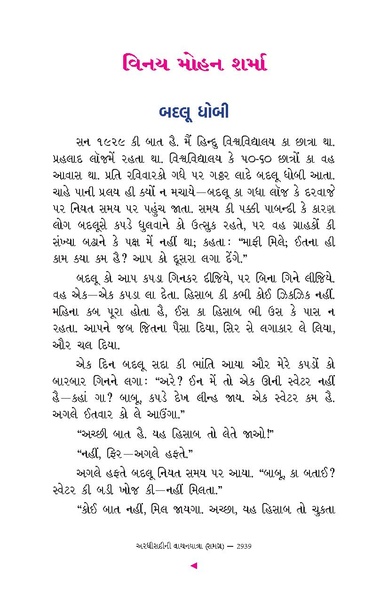 વિનય મોહન શર્મા
બદલૂ ધોબી
સન ૧૯૨૯ કી બાત હૈ. મૈં હિન્દુ વિશ્વવિદ્યાલય કા છાત્રા થા.
પ્રહલાદ લૉજમેં રહતા થા. વિશ્વવિદ્યાલય કે ૫૦-૬૦ છાત્રોં કા વહ
આવાસ થા. પ્રતિ રવિવારકો ગધે પર ગઠ્ઠર લાદે બદલૂ ધોબી આતા.
ચાહે પાની પ્રલય હી ક્યોં ન મચાયે—બદલૂ કા ગધા લૉજ કે દરવાજે
પર નિયત સમય પર પહુંચ જાતા. સમય કી પક્કી પાબન્દી કે કારણ
લોગ બદલૂસે કપડે ધુલવાને કો ઉત્સુક રહતે, પર વહ ગ્રાહકોં કી
સંખ્યા બઢાને કે પક્ષ મેં નહીં થા; કહતા: “માફી મિલે; ઈતના હી
કામ ક્યા કમ હૈ? આપ કો દૂસરા લગા દેંગે.”
બદલૂ કો આપ કપડા ગિનકર દીજિયે, પર બિના ગિને લીજિયે.
વહ એક—એક કપડા લા દેતા. હિસાબ કી કભી કોઈ ઝિકઝિક નહીં.
મહિના કબ પૂરા હોતા હૈ, ઈસ કા હિસાબ ભી ઉસ કે પાસ ન
રહતા. આપને જબ જિતના પૈસા દિયા, સિર સે લગાકાર લે લિયા,
ઔર ચલ દિયા.
એક દિન બદલૂ સદા કી ભાંતિ આયા ઔર મેરે કપડોં કો
બારબાર ગિનને લગા: “અરે? ઈન મેં તો એક ઊની સ્વેટર નહીં
હૈ—કહાં ગા? બાબૂ, કપડે દેખ લીન્હ જાય. એક સ્વેટર કમ હૈ.
અગલે ઈતવાર કો લે આઉંગા.”
“અચ્છી બાત હૈ. યહ હિસાબ તો લેતે જાઓ!”
“નહીં, ફિર—અગલે હફતે.”
અગલે હફતે બદલૂ નિયત સમય પર આયા. “બાબૂ, કા બતાઈ?
સ્વેટર કી બડી ખોજ કી—નહીં મિલતા.”
“કોઈ બાત નહીં, મિલ જાયગા. અચ્છા, યહ હિસાબ તો ચુકતા
અરધીસદીની વાચનયાત્રા (સમગ્ર) — 2939